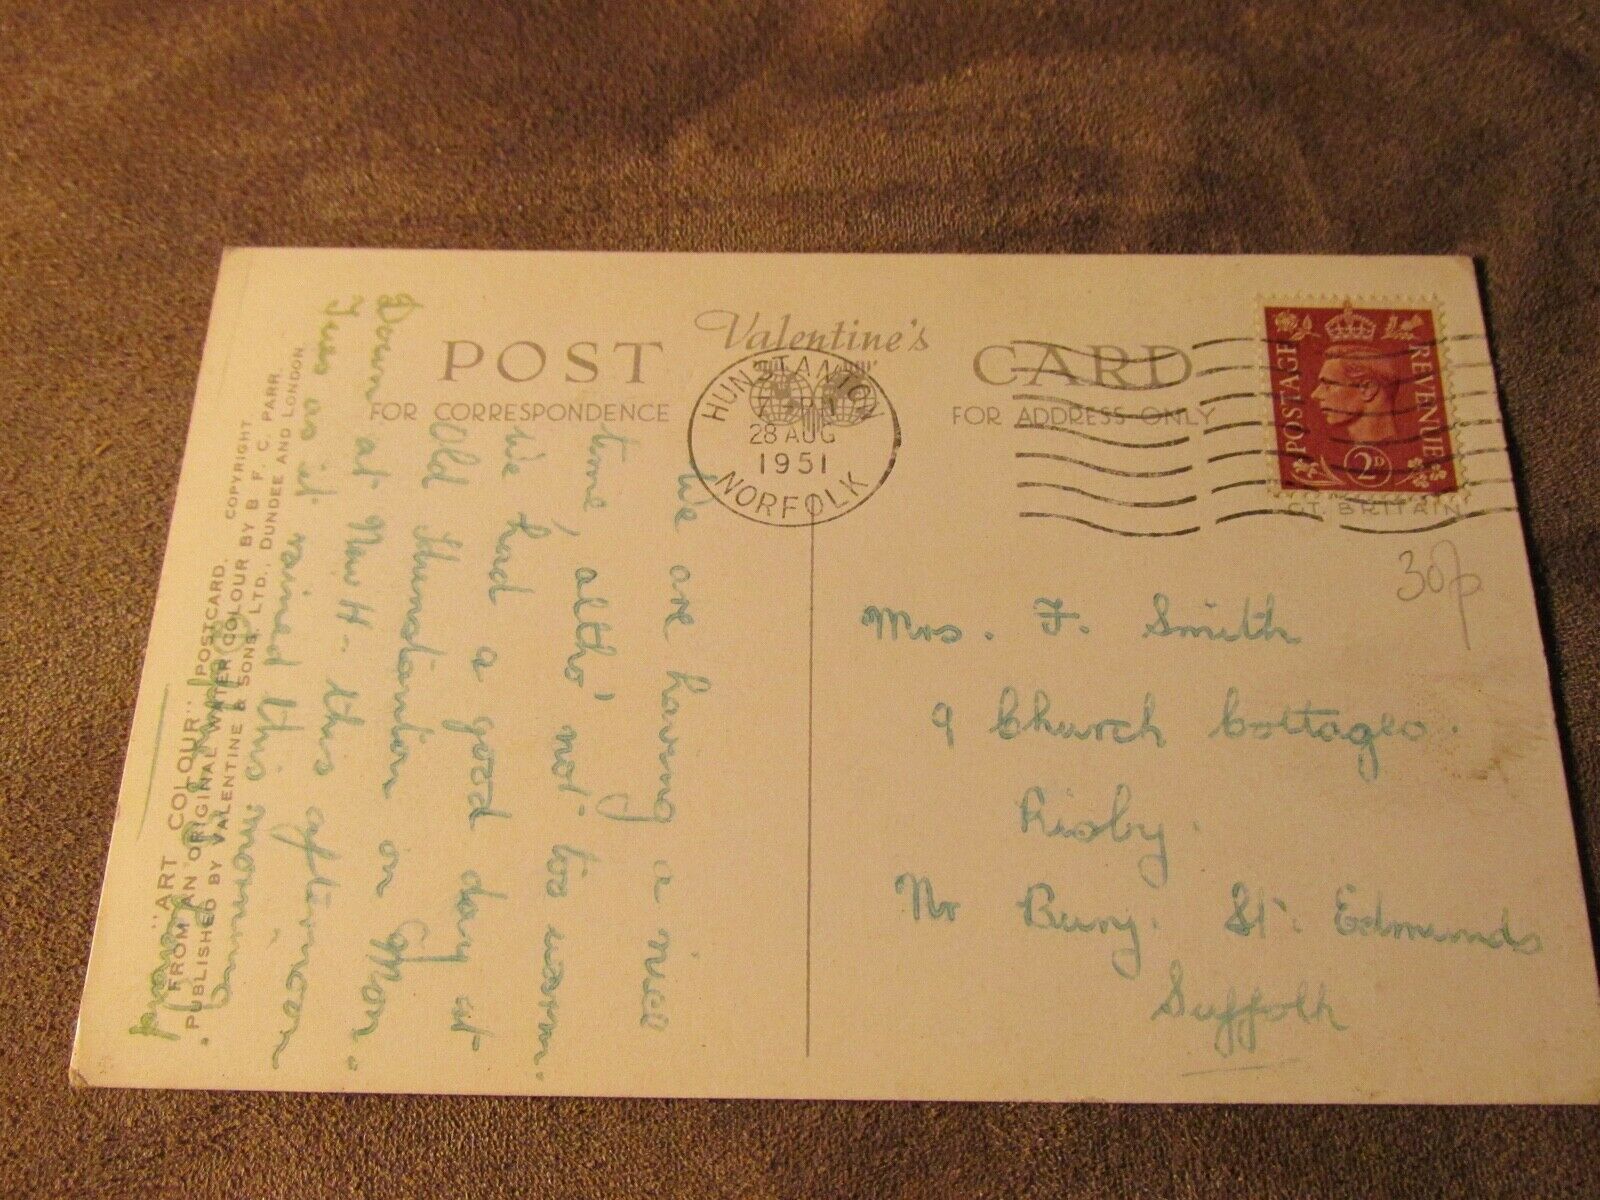 Valentine's
POST CARD
FOR CORRESPONDENCE
FOR ADDRESS ONLY
HUNSTANTON
28 AUG
1951
NORFOLK
POSTAGE REVENUE
2D
GT. BRITAIN
30p
We are having a nice
time, altho' not too warm.
We had a good day at
Old Hunstanton on Mon.
Down at New H- this afternoon
Tues as it rained this morning
Mrs. F. Smith
9 Church Cottages.
Risby.
Nr Bury. St. Edmunds
Suffolk
"ART COLOUR" POSTCARD. COPYRIGHT
FROM AN ORIGINAL WATER COLOUR BY B. F. C. PARR.
PUBLISHED BY VALENTINE & SONS, LTD., DUNDEE AND LONDON